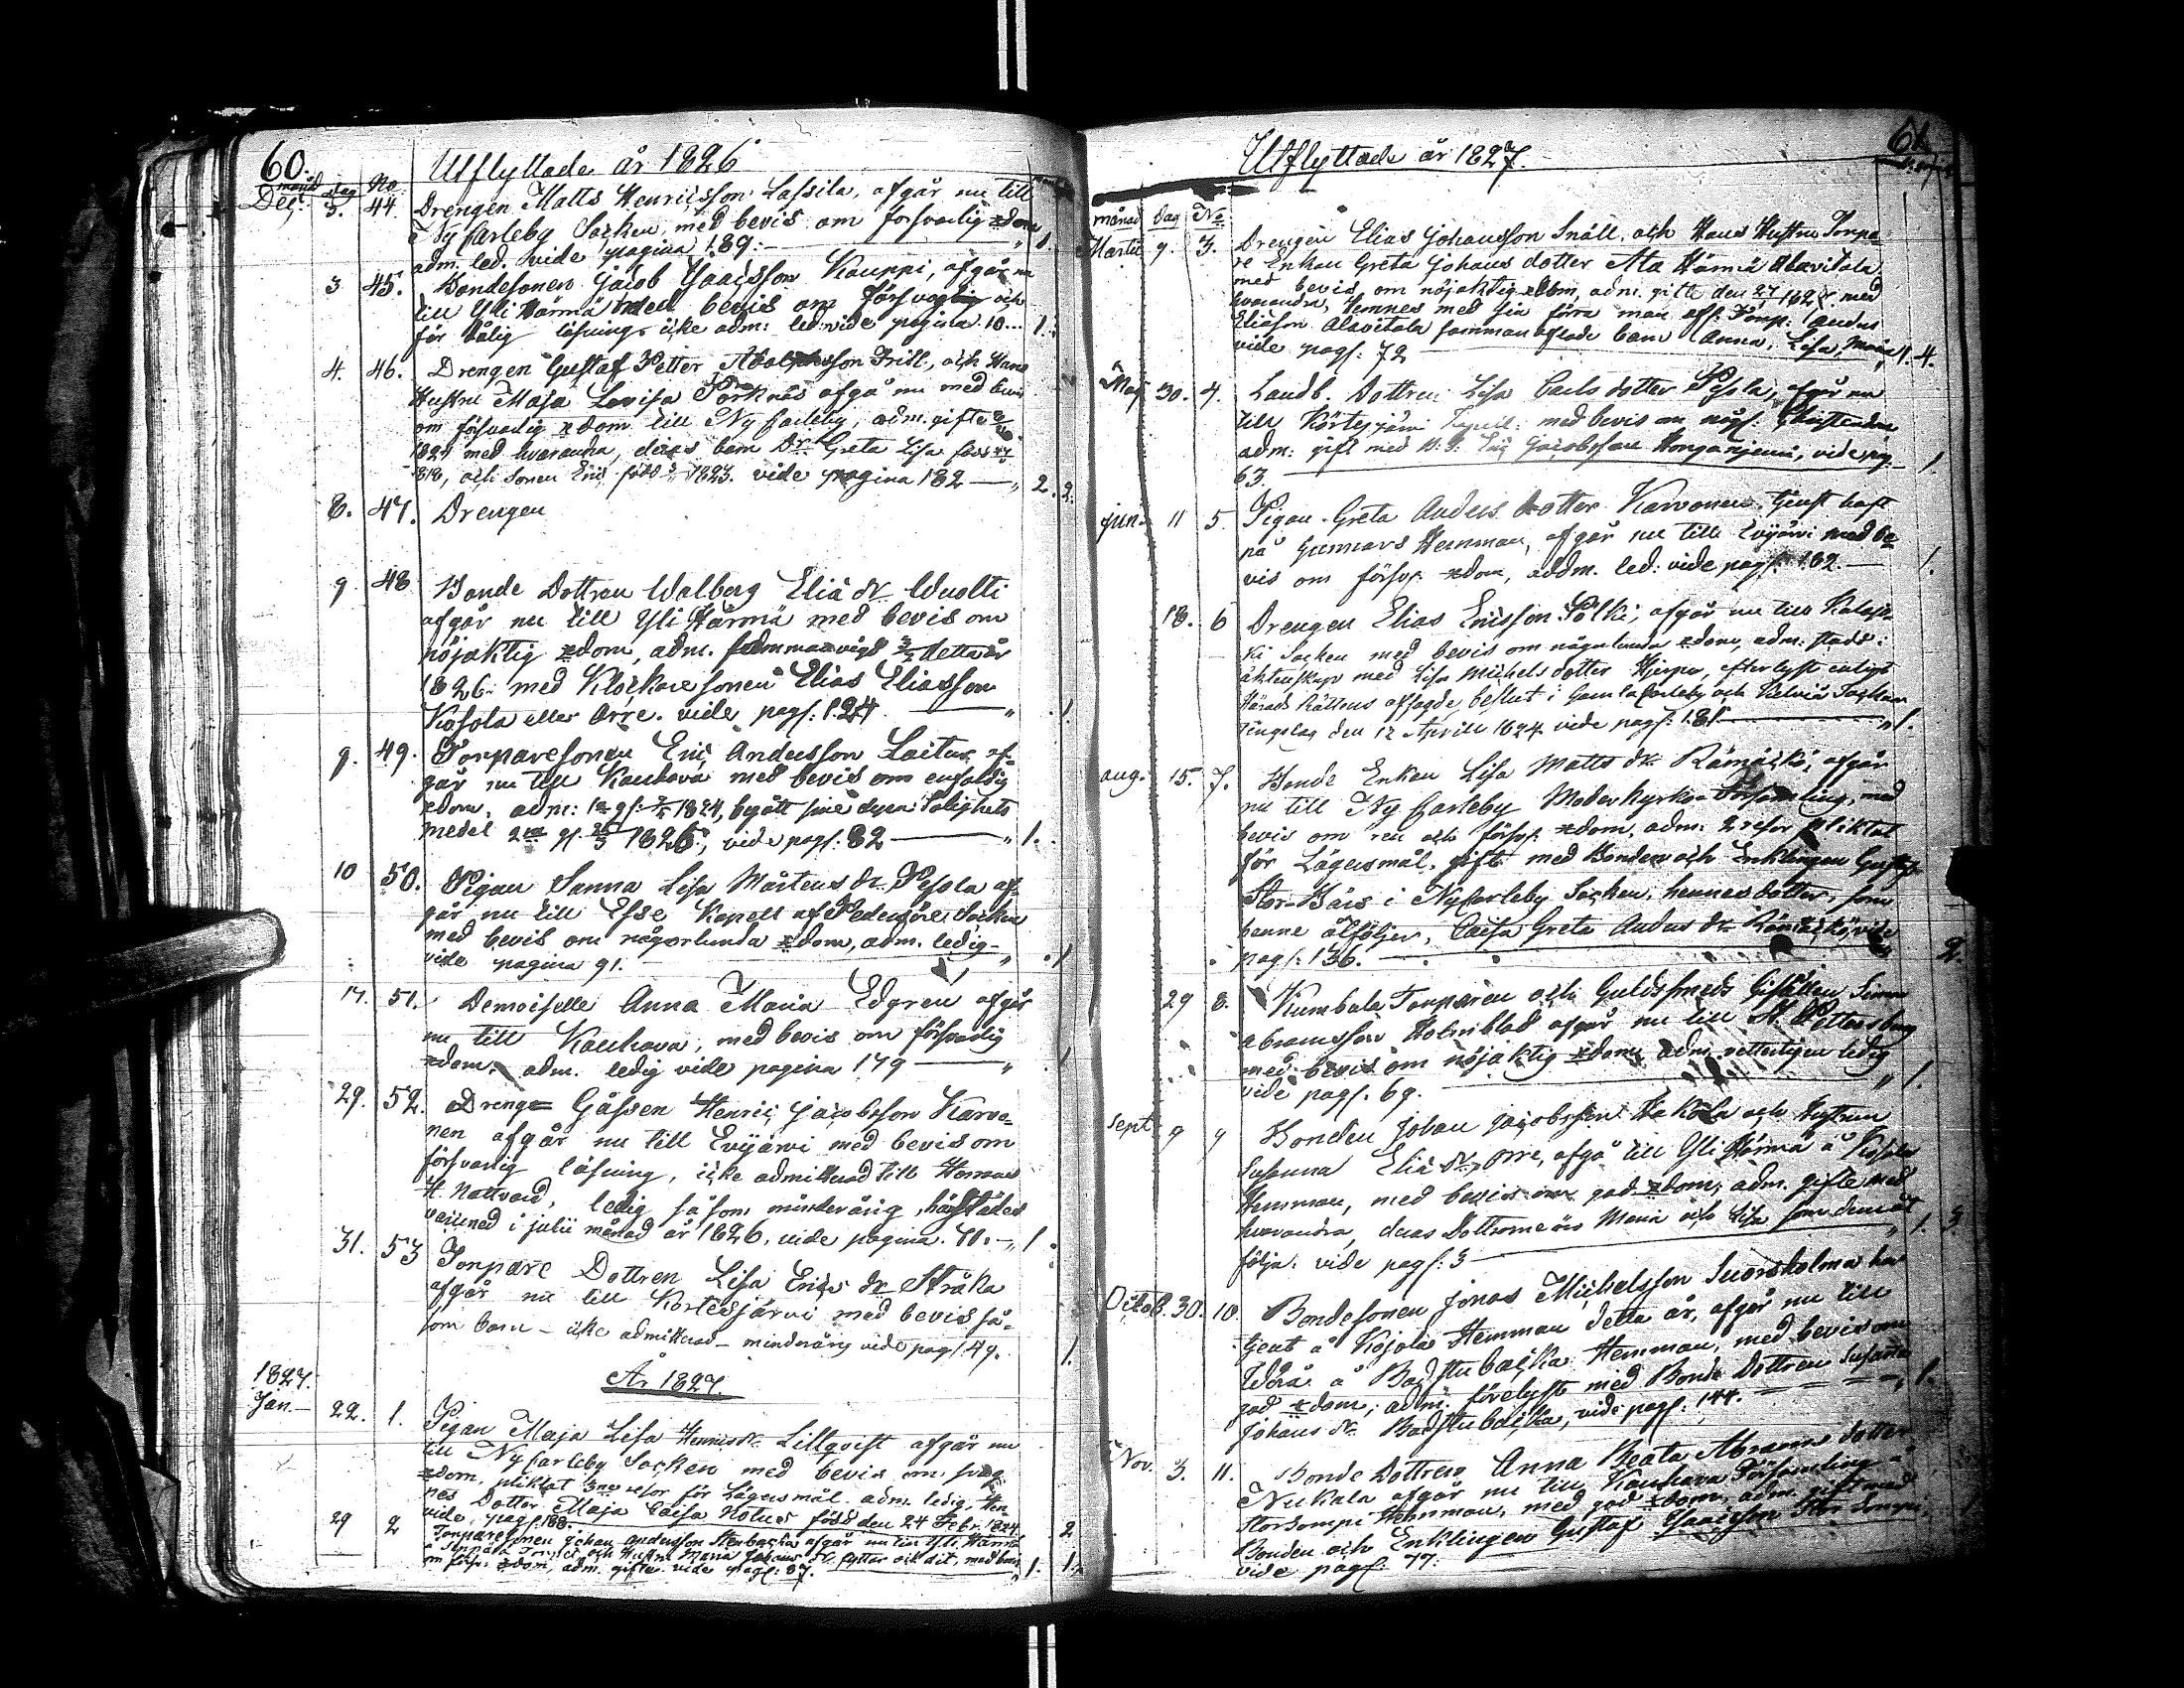 60.
Utflyttade år 1826
månd dag No
Dec. 3. 44. Drengen Matts Henricsson Lassila, afgår nu till
Ny Carleby Socken, med bevis om försvarlig xdom
adm. led. vide pagina 189. — „ 1.
3 45. Bondesonen Jacob Isacsson Kauppi, afgår nu
till Yli Härmä med bevis om försvarlig och
för dålig läsning icke adm: led. vide pagina 10... 1.
4. 46. Drengen Gustaf Petter Adolphsson Frill, och Hans
Hustru Maja Lovisa afgå nu med bevis
om försvarlig xdom till Ny Carleby, adm. gifte
1821 med hvarandra, deras barn Dr. Greta Lisa född
1818, och Sonen Eric född 1823. vide pagina 182 — „ 2. 2.
8. 47. Drengen
9. 48 Bonde Dottren Walborg Eliä dr Wuolti
afgår nu till Yli Härmä med bevis om
nöjaktig xdom, adm. detta år
1826. med Klockare sonen Elias Eliasson
Kosola eller Orre. vide pag: 124. — „ 1.
9. 49. Torparesonen Eric Andersson Laitus af-
går nu till Kauhava med bevis om enfaldig
xdom, adm: 1a g: 1824, begått sine dyra Salighets
medel 2na g. 1826, vide pag: 82 — „ 1.
10 50. Pigan Sanna Lisa Mårtens dr Pesola af-
går nu till Esse Kapell af Pedersöre Socken
med bevis om någorlunda xdom, adm. ledig-
vide pagina 91. — „ 1
17. 51. Demoiselle Anna Maria Edgren afgår
nu till Kauhava, med bevis om försvarlig
xdom. adm. ledig vide pagina 179 — „ 1
29. 52. Drenge Gåssen Henric Jacobsson Karvo-
nen afgår nu till Evijärvi med bevis om
försvarlig läsning, icke admitterad till Herrans
H. Nattvard, ledig såsom minderårig,
i julii månad år 1826, vide pagina 71. — „ 1.
31. 53 Torpare Dottren Lisa Erics dr Stråka
afgår nu till Kortesjärvi med bevis så-
som barn - icke admitterad - minderårig vide pag. 49. 1.
År 1827.
1827.
Jan. 22. 1. Pigan Maja Lisa Henrics dr Lillqvist afgår nu
till Ny Carleby Socken med bevis om svag
xdom, pliktat 3ne resor för Lägersmål. adm. ledig, Hen-
nes Dotter Maja Caisa Notues född den 24 Febr. 1824
vide, pag: 188. 2
29 2 Torparesonen Johan Andersson Stenbacka afgår nu till Yli Härmä
och Hustru Maria Johans dr flyttar ock dit, med bevis
om försv: xdom, adm. gifte vide pag: 87. „ 1. 1.
61.
Utflyttade år 1827.
månad dag No
Martii 9. 3. Drengen Elias Johansson Snåll, och Hans Hustru Torpa-
re Enkan Greta Johans dotter Ala Härmä Alavitala,
med bevis om nöjaktig xdom, adm. gifte den med
hvarandra, Hennes med sin förra man afl. Torp: Anders
Eliasson Alavitala samman aflade barn Anna, Lisa, Maria
vide pag: 72 — 1. 4.
Maj 30. 4. Landb. Dottren Lisa Carls dotter Pesola, afgår nu
till Kortesjärvi Capell: med bevis om nöj: Christendom
adm: gift med B. S: Eric Jacobsson Honganjemi, vide pag:
63. — 1.
Jun. 11 5. Pigan Greta Anders dotter Karvonen, tjenst haft
på Gunnars Hemman, afgår nu till Evijärvi med be-
vis om försv: xdom, addm. led: vide pag: 182. — 1.
18. 6 Drengen Elias Ericsson Pölki, afgår nu till Kalajo-
ki Socken med bevis om någorlunda xdom, adm.
äktenskap med Lisa Michels dotter Hjerpe, efterlyst enligt
Härads Rättens affagde beslut i Gamla Carleby och Kelviå Socknar
Tingslag den 12 Aprill 1824 vide pag: 181 — „ 1.
aug. 15. 7. Bonde Enkan Lisa Matts dr Rämäckö, afgår
nu till Ny Carleby Moderkyrko Församling, med
bevis om ren och försv: xdom, adm. 2 resor pliktat
för Lägersmål. gift med Bonden och Enklingen Gustaf
Stor-Bärs i Nycarleby Socken, hennes dotter, som
henne åtföljer, Caisa Greta Anders dr Rämäckö, vide
pag: 136. — 2.
29 8. Kumbala Torparen och Guldsmeds Gesällen Simon
Abramsson Holmblad afgår nu till St. Pettersburg
med bevis om nöjaktig xdom, adm. vetterligen ledig
vide pag. 69. — „ 1.
Sept 9 9 Bonden Johan Jacobsson Hakola och Hustrun
Susanna Eliä dr Orre, afgå till Yli Härmä å Kosola
Hemman, med bevis om god xdom, adm. gifte med
hvarandra, deras Döttrarne äro Maria och Lisa som dem åt
följa. vide pag: 3 — „ 1. 3.
Octob. 30. 10. Bondesonen Jonas Michelsson Suorsholma har
tjent å Kojola Hemman detta år, afgår nu till
Wörå å Badstubacka Hemman, med bevis om
god xdom, adm. förelyst med Bonde Dottren Susanna
Johans dr Badstubacka, vide pag: 144. — 1.
Nov. 3. 11. Bonde Dottren Anna Beata Abrams dotter
Nukala afgår nu till Kauhava Församling å
Storsompi Hemman, med god xdom, adm. gift med
Bonden och Enklingen Gustaf Isacsson Stor Sompi,
vide pag: 77.